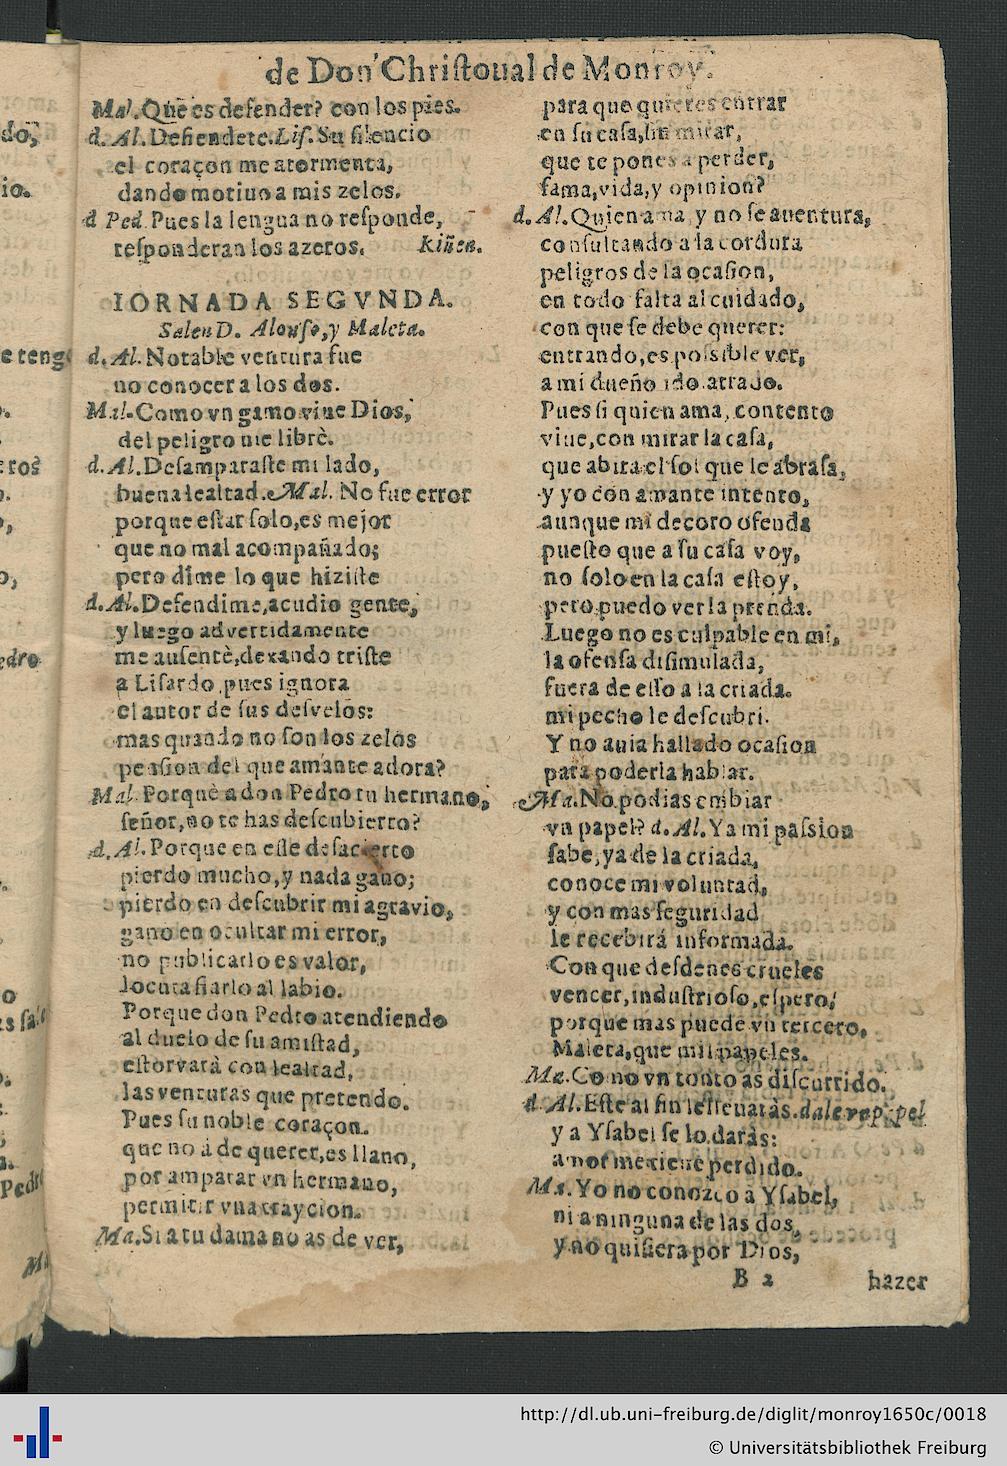 de Don Christoual de Monroy.
Mal. Que es defender? con los pies.
d. Al. Defiendete. Lis. Su silencio
el coraçon me atormenta,
dando motiuo a mis zelos.
d Ped. Pues la lengua no responde,
responderan los azeros. Riñen.
IORNADA SEGVNDA.
Salen D. Alonso, y Maleta.
d. Al. Notable ventura fue
no conocer a los dos.
Mal. Como vn gamo viue Dios,
del peligro me librè.
d. Al. Desamparaste mi lado,
buena lealtad. Mal. No fue error
porque estar solo, es mejor
que no mal acompañado;
pero dime lo que hiziste
d. Al. Defendime, acudio gente,
y luego advertidamente
me ausentè, dexando triste
a Lisardo, pues ignora
el autor de sus desvelos:
mas quando no son los zelos
pension del que amante adora?
Mal. Porquè a don Pedro tu hermano,
señor, no te has descubierto?
d. Al. Porque en esse desacierto
pierdo mucho, y nada gano;
pierdo en descubrir mi agravio,
gano en ocultar mi error,
no publicarlo es valor,
locura fiarlo al labio.
Porque don Pedro atendiendo
al duelo de su amistad,
estorvarà con lealtad,
las venturas que pretendo.
Pues su noble coraçon.
que no á de querer, es llano,
por amparar vn hermano,
permitir vna traycion.
Ma. Si a tu dama no as de ver,
para que quieres entrar
en su casa, sin mirar,
que te pones a perder,
fama, vida, y opinion?
d. Al. Quien ama, y no se auentura,
consultando a la cordura
peligros de la ocasion,
en todo falta al cuidado,
con que se debe querer:
entrando, es possible ver,
a mi dueño idolatrado.
Pues si quien ama, contento
viue, con mirar la casa,
que abita el sol que le abrasa,
y yo con amante intento,
aunque mi decoro ofenda
puesto que a su casa voy,
no solo en la casa estoy,
pero puedo ver la prenda.
Luego no es culpable en mi,
la ofensa disimulada,
fuera de esso a la criada.
mi pecho le descubri.
Y no auia hallado ocasion
para poderla hablar.
Ma. No podias embiar
vn papel? d. Al. Ya mi passion
sabe, ya de la criada,
conoce mi voluntad,
y con mas seguridad
le recebirá informada.
Con que desdenes crueles
vencer, industrioso, espero,
porque mas puede vn tercero,
Maleta, que mil papeles.
Ma. Como vn tonto as discurrido.
d. Al. Este al fin le lleuaràs. dale vn papel
y a Ysabel se lo daràs:
amor me tiene perdido.
Ma. Yo no conozco à Ysabel,
ni a ninguna de las dos,
y no quisiera por Dios,
B 2 hazer
http://dl.ub.uni-freiburg.de/diglit/monroy1650c/0018
© Universitätsbibliothek Freiburg